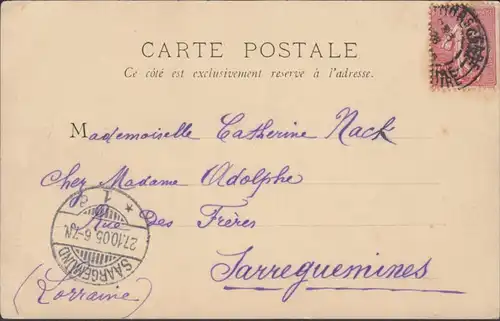 CARTE POSTALE
Ce côté est exclusivement reservé à l'adresse.
Mademoiselle Catherine Nack
Chez Madame Adolphe
Rue Des Frères
Sarreguemines
(Lorraine)
SAARGEMÜND
27.10.05. 6-7N.
* 1 a